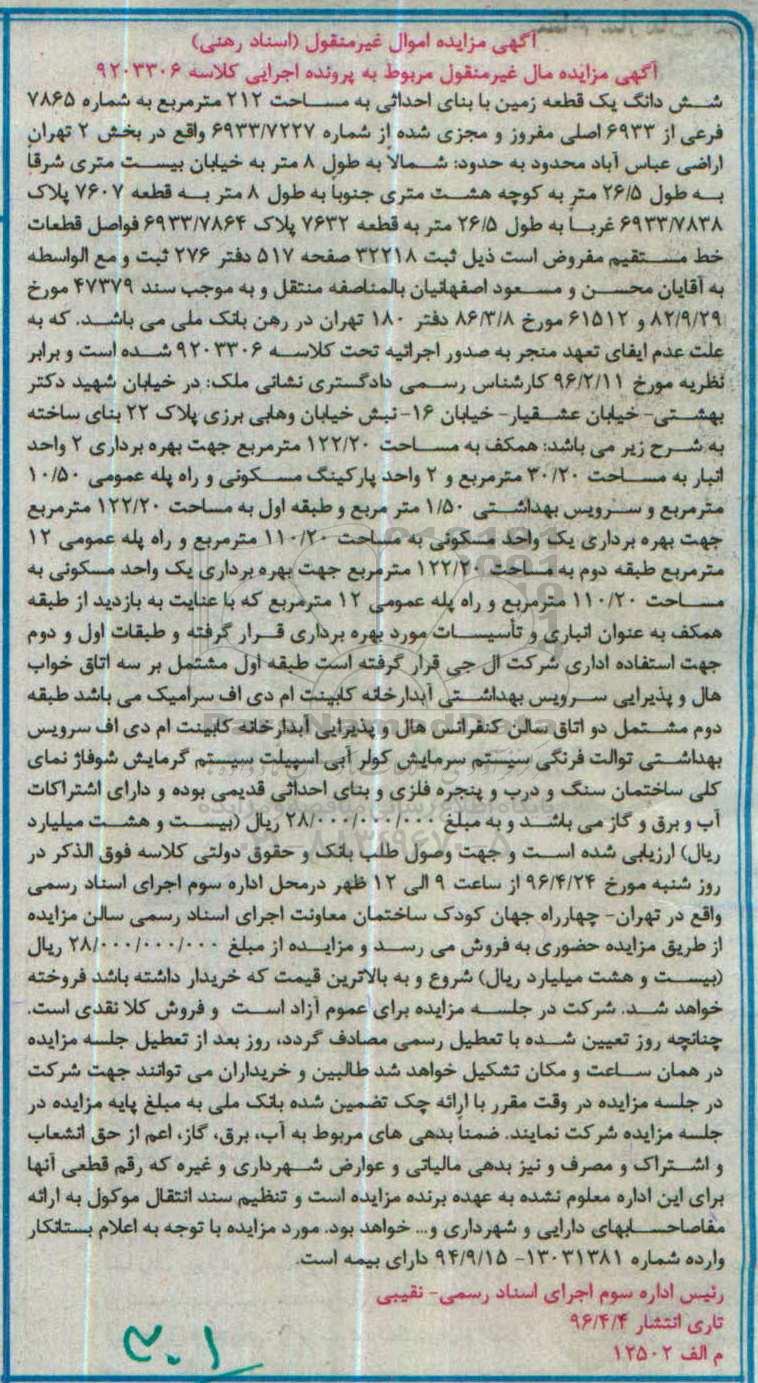 آگهی مزایده اموال غیرمنقول (اسناد رهنی)
آگهی مزایده مال غیرمنقول مربوط به پرونده اجرایی کلاسه ۹۲۰۳۳۰۶
شش دانگ یک قطعه زمین با بنای احداثی به مساحت ۲۱۲ مترمربع به شماره ۷۸۶۵
فرعی از ۶۹۳۳ اصلی مفروز و مجزی شده از شماره ۶۹۳۳/۷۲۲۷ واقع در بخش ۲ تهران
اراضی عباس آباد محدود به حدود: شمالاً به طول ۸ متر به خیابان بیست متری شرقاً
به طول ۲۶/۵ متر به کوچه هشت متری جنوباً به طول ۸ متر به قطعه ۷۶۰۷ پلاک
۶۹۳۳/۷۸۳۸ غرباً به طول ۲۶/۵ متر به قطعه ۷۶۳۲ پلاک ۶۹۳۳/۷۸۶۴ فواصل قطعات
خط مستقیم مفروض است ذیل ثبت ۳۲۲۱۸ صفحه ۵۱۷ دفتر ۲۷۶ ثبت و مع الواسطه
به آقایان محسن و مسعود اصفهانیان بالمناصفه منتقل و به موجب سند ۴۷۳۷۹ مورخ
۸۲/۹/۲۹ و ۶۱۵۱۲ مورخ ۸۶/۳/۸ دفتر ۱۸۰ تهران در رهن بانک ملی می باشد. که به
علت عدم ایفای تعهد منجر به صدور اجرائیه تحت کلاسه ۹۲۰۳۳۰۶ شده است و برابر
نظریه مورخ ۹۶/۲/۱۱ کارشناس رسمی دادگستری نشانی ملک: در خیابان شهید دکتر
بهشتی- خیابان عشقیار- خیابان ۱۶- نبش خیابان وهابی برزی پلاک ۲۲ بنای ساخته
به شرح زیر می باشد: همکف به مساحت ۱۲۲/۲۰ مترمربع جهت بهره برداری ۲ واحد
انبار به مساحت ۳۰/۲۰ مترمربع و ۲ واحد پارکینگ مسکونی و راه پله عمومی ۱۰/۵۰
مترمربع و سرویس بهداشتی ۱/۵۰ متر مربع و طبقه اول به مساحت ۱۲۲/۲۰ مترمربع
جهت بهره برداری یک واحد مسکونی به مساحت ۱۱۰/۲۰ مترمربع و راه پله عمومی ۱۲
مترمربع طبقه دوم به مساحت ۱۲۲/۲۰ مترمربع جهت بهره برداری یک واحد مسکونی به
مساحت ۱۱۰/۲۰ مترمربع و راه پله عمومی ۱۲ مترمربع که با عنایت به بازدید از طبقه
همکف به عنوان انباری و تأسیسات مورد بهره برداری قرار گرفته و طبقات اول و دوم
جهت استفاده اداری شرکت ال جی قرار گرفته است طبقه اول مشتمل بر سه اتاق خواب
هال و پذیرایی سرویس بهداشتی آبدارخانه کابینت ام دی اف سرامیک می باشد طبقه
دوم مشتمل دو اتاق سالن کنفرانس هال و پذیرایی آبدارخانه کابینت ام دی اف سرویس
بهداشتی توالت فرنگی سیستم سرمایش کولر آبی اسپیلت سیستم گرمایش شوفاژ نمای
کلی ساختمان سنگ و درب و پنجره فلزی و بنای احداثی قدیمی بوده و دارای اشتراکات
آب و برق و گاز می باشد و به مبلغ ۲۸/۰۰۰/۰۰۰/۰۰۰ ریال (بیست و هشت میلیارد
ریال) ارزیابی شده است و جهت وصول طلب بانک و حقوق دولتی کلاسه فوق الذکر در
روز شنبه مورخ ۹۶/۴/۲۴ از ساعت ۹ الی ۱۲ ظهر درمحل اداره سوم اجرای اسناد رسمی
واقع در تهران- چهارراه جهان کودک ساختمان معاونت اجرای اسناد رسمی سالن مزایده
از طریق مزایده حضوری به فروش می رسد و مزایده از مبلغ ۲۸/۰۰۰/۰۰۰/۰۰۰ ریال
(بیست و هشت میلیارد ریال) شروع و به بالاترین قیمت که خریدار داشته باشد فروخته
خواهد شد. شرکت در جلسه مزایده برای عموم آزاد است و فروش کلا نقدی است.
چنانچه روز تعیین شده با تعطیل رسمی مصادف گردد، روز بعد از تعطیل جلسه مزایده
در همان ساعت و مکان تشکیل خواهد شد طالبین و خریداران می توانند جهت شرکت
در جلسه مزایده در وقت مقرر با ارائه چک تضمین شده بانک ملی به مبلغ پایه مزایده در
جلسه مزایده شرکت نمایند. ضمناً بدهی های مربوط به آب، برق، گاز، اعم از حق انشعاب
و اشتراک و مصرف و نیز بدهی مالیاتی و عوارض شهرداری و غیره که رقم قطعی آنها
برای این اداره معلوم نشده به عهده برنده مزایده است و تنظیم سند انتقال موکول به ارائه
مفاصاحسابهای دارایی و شهرداری و... خواهد بود. مورد مزایده با توجه به اعلام بستانکار
وارده شماره ۱۳۰۳۱۳۸۱- ۹۴/۹/۱۵ دارای بیمه است.
رئیس اداره سوم اجرای اسناد رسمی- نقیبی
تاری انتشار ۹۶/۴/۴
م الف ۱۲۵۰۲
۳۰۱